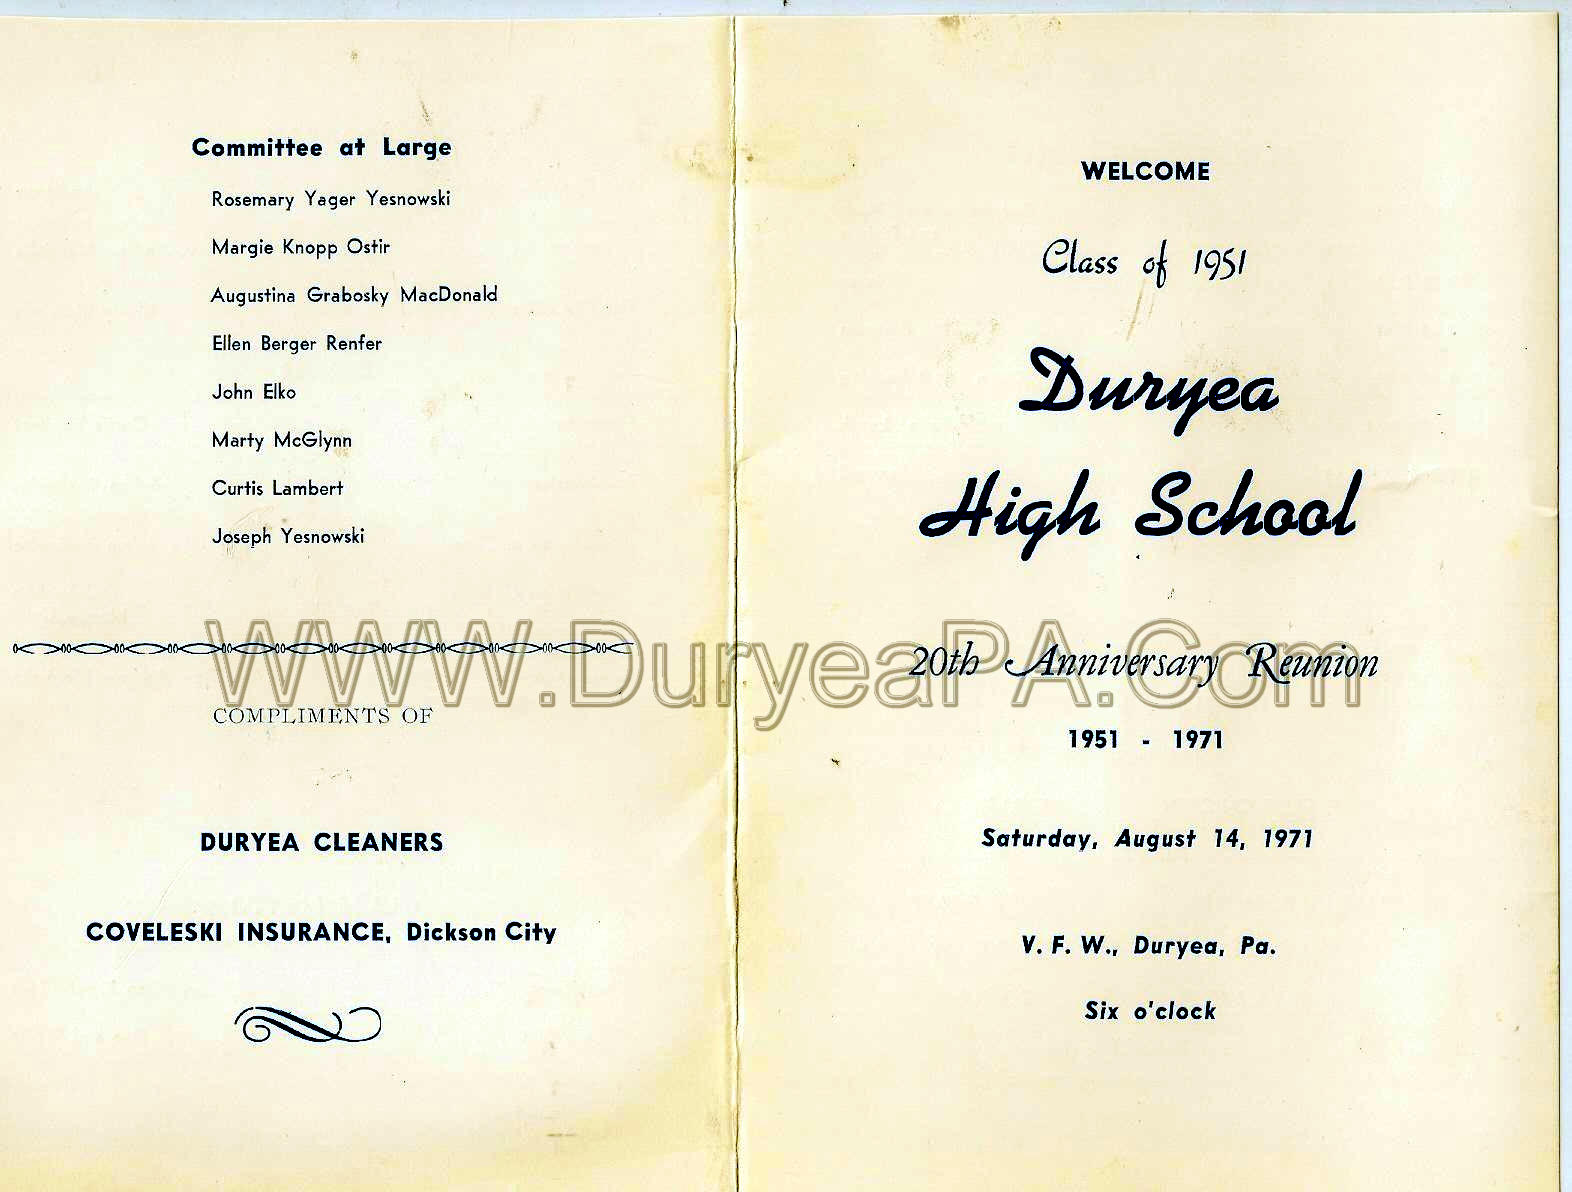 Committee at Large
Rosemary Yager Yesnowski
Margie Knopp Ostir
Augustina Grabosky MacDonald
Ellen Berger Renfer
John Elko
Marty McGlynn
Curtis Lambert
Joseph Yesnowski
COMPLIMENTS OF
DURYEA CLEANERS
COVELESKI INSURANCE, Dickson City
WELCOME
Class of 1951
Duryea
High School
20th Anniversary Reunion
1951 - 1971
Saturday, August 14, 1971
V. F. W., Duryea, Pa.
Six o'clock
WWW.DuryeaPA.Com